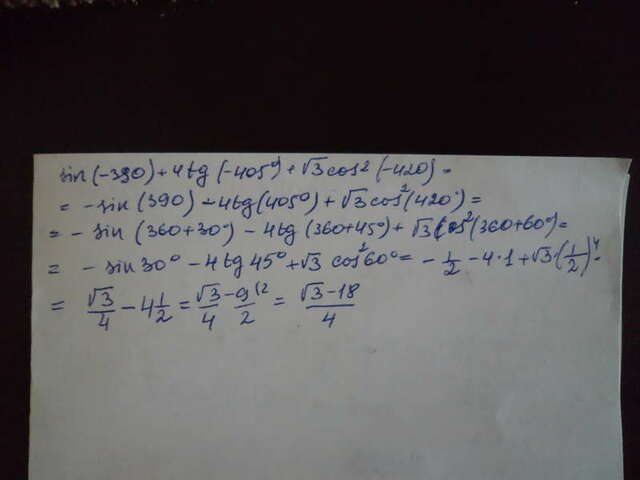 sin(-390)+4tg(-405°)+√3cos²(-420)=
= -sin(390)-4tg(405°)+√3cos²(420°)=
= -sin(360+30°)-4tg(360+45°)+√3cos²(360+60°)=
= -sin30°-4tg45°+√3cos²60°= -1/2-4·1+√3·(1/2)²=
= √3/4-4 1/2= √3/4-9/2= (√3-18)/4